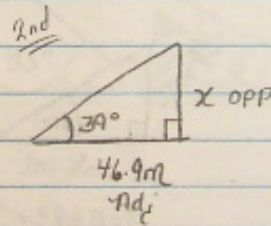 2nd
39°
x opp
46.9m
Adj